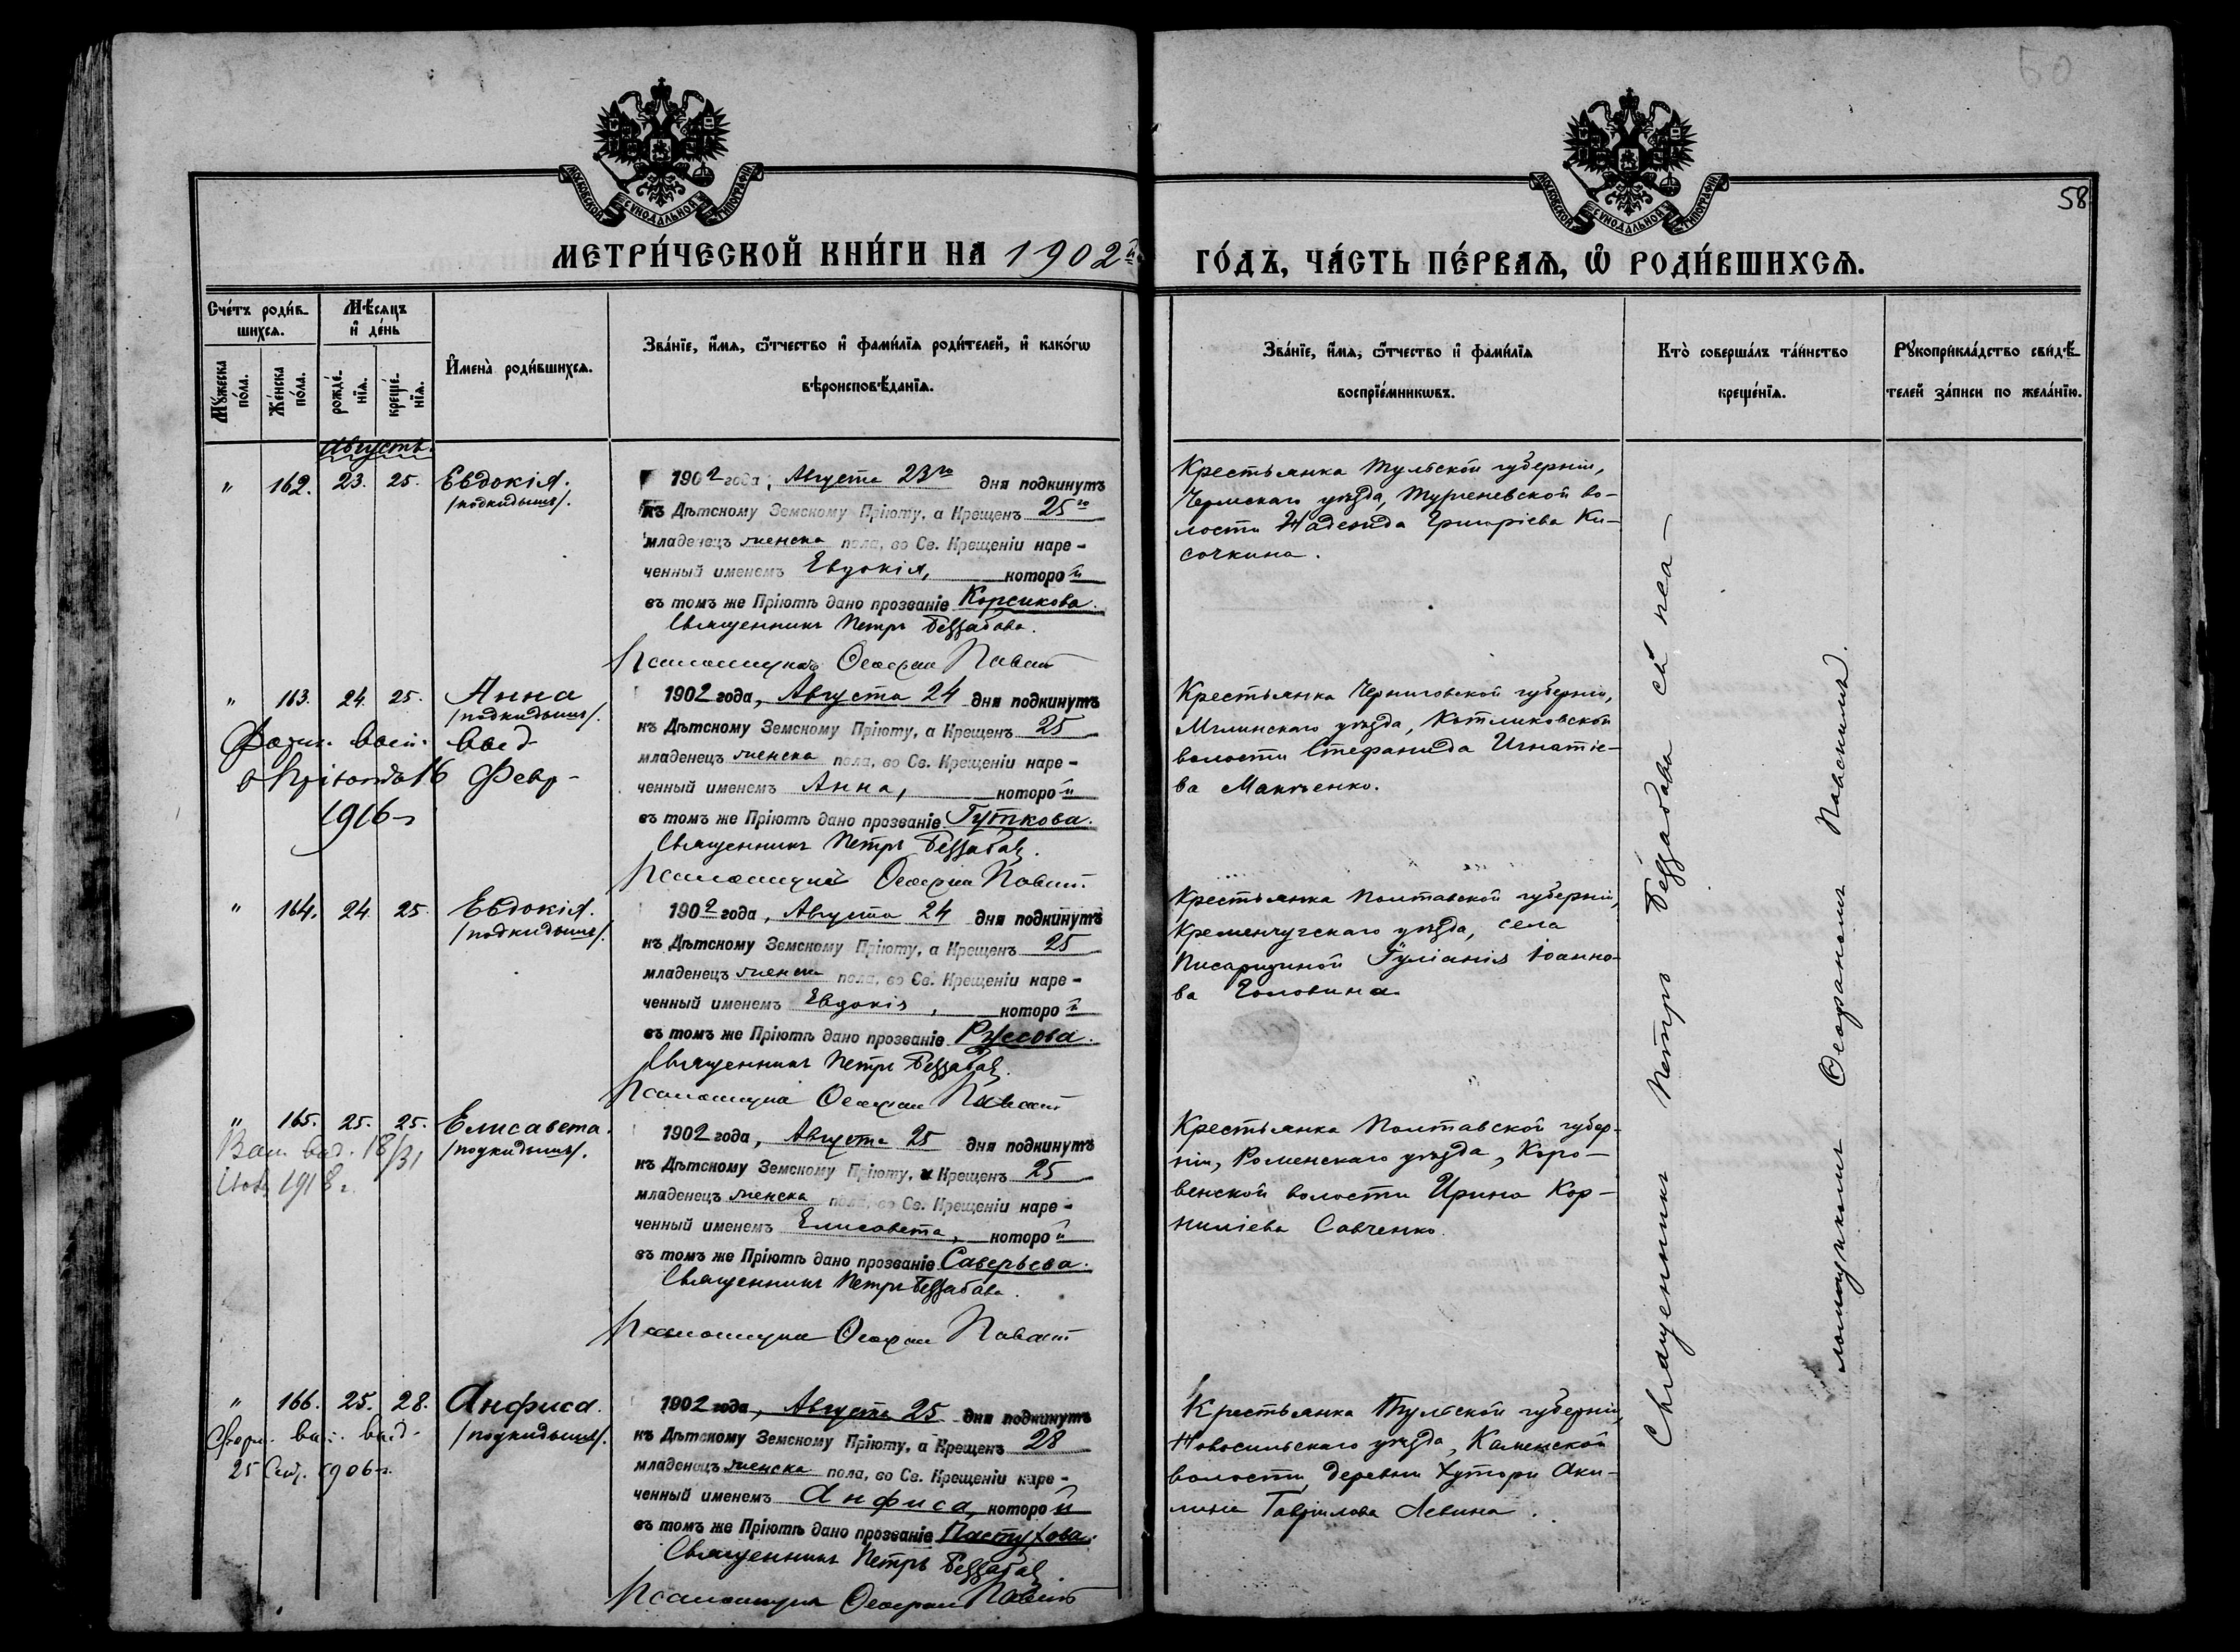 50
58
МОСКОВСКОЙ СУНОДАЛЬНОЙ ТИПОГРАФІИ
МОСКОВСКОЙ СУНОДАЛЬНОЙ ТИПОГРАФІИ
МЕТРИ́ЧЕСКОЙ КНИ́ГИ НА 1902й
ГО́ДЪ, ЧА́СТЬ ПЕ́РВАѦ, Ѽ РОДИ́ВШИХСѦ.
Сче́тъ роди́в-
шихсѧ.
Мꙋ́жеска по́ла.
Же́нска по́ла.
Мѣ́сяцъ
и҆ де́нь
рожде́-нїѧ.
креще́-нїѧ.
И҆мена̀ роди́вшихсѧ.
Зва́нїе, и҆́мѧ, ѻ҆́тчество и҆ фами́лїѧ роди́телей, и҆ како́гѡ
вѣроисповѣ́данїѧ.
Зва́нїе, и҆́мѧ, ѻ҆́тчество и҆ фами́лїѧ
воспрїе́мникѡвъ.
Кто̀ соверша́лъ та́инство
креще́нїѧ.
Рꙋкоприкла́дство свидѣ́-
телей за́писи по жела́нїю.
Августъ.
" 162. 23. 25. Евдокія.
/подкидышъ/.
1902 года, Августа 23го дня подкинутъ
къ Дѣтскому Земскому Пріюту, а Крещенъ 25го
младенецъ женска пола, во Св. Крещеніи наре-
ченный именемъ Евдокія, которой
въ томъ же Пріютѣ дано прозваніе Корсикова.
Священникъ Петръ Беззабава.
Псаломщикъ Ѳеофан
Крестьянка Тульской губерніи,
Чермскаго уѣзда, Тургеневской во-
лости Надежда Григоріева Ки-
сочкина.
" 163. 24. 25. Анна
/подкидышъ/.
выд
16 Февр-
1916 г
1902 года, Августа 24 дня подкинутъ
къ Дѣтскому Земскому Пріюту, а Крещенъ 25
младенецъ женска пола, во Св. Крещеніи наре-
ченный именемъ Анна, которой
въ томъ же Пріютѣ дано прозваніе Гуткова.
Священникъ Петръ Беззабав
Псаломщикъ Ѳеофан
Крестьянка Черниговской губерніи,
Мглинскаго уѣзда, Котляковской
волости Стефанида Игнатіе-
ва Макченко.
" 164. 24 25. Евдокія.
/подкидышъ/.
1902 года, Августа 24 дня подкинутъ
къ Дѣтскому Земскому Пріюту, а Крещенъ 25
младенецъ женска пола, во Св. Крещеніи наре-
ченный именемъ Евдокія, которой
въ томъ же Пріютѣ дано прозваніе Руссова.
Священникъ Петръ Беззабав
Псаломщикъ Ѳеофан
Крестьянка Полтавской губерніи,
Кременчугскаго уѣзда, села
Іуліанія Іоанно-
ва Головина
" 165. 25. 25. Елисавета.
/подкидышъ/.
18/31
1918 г.
1902 года, Августа 25 дня подкинутъ
къ Дѣтскому Земскому Пріюту, а Крещенъ 25
младенецъ женска пола, во Св. Крещеніи наре-
ченный именемъ Елисавета, которой
въ томъ же Пріютѣ дано прозваніе Саверьева.
Священникъ Петръ Беззабава.
Псаломщикъ Ѳеофан
Крестьянка Полтавской губер-
ніи, Роменскаго уѣзда, Коро-
венской волости Ирина Кор-
ниліева Савченко.
" 166. 25. 28. Анфиса.
/подкидышъ/.
выд
25 1906 г.
1902 года, Августа 25 дня подкинутъ
къ Дѣтскому Земскому Пріюту, а Крещенъ 28
младенецъ женска пола, во Св. Крещеніи наре-
ченный именемъ Анфиса, которой
въ томъ же Пріютѣ дано прозваніе Пастухова.
Священникъ Петръ Беззабав
Псаломщикъ Ѳеофан
Крестьянка Тульской губерніи,
Новосильскаго уѣзда, Каменской
волости, деревни Хутори Аки-
лина Гавріилова Левина.
Священникъ Петръ Беззабава съ пса-
ломщикомъ Ѳеофаномъ